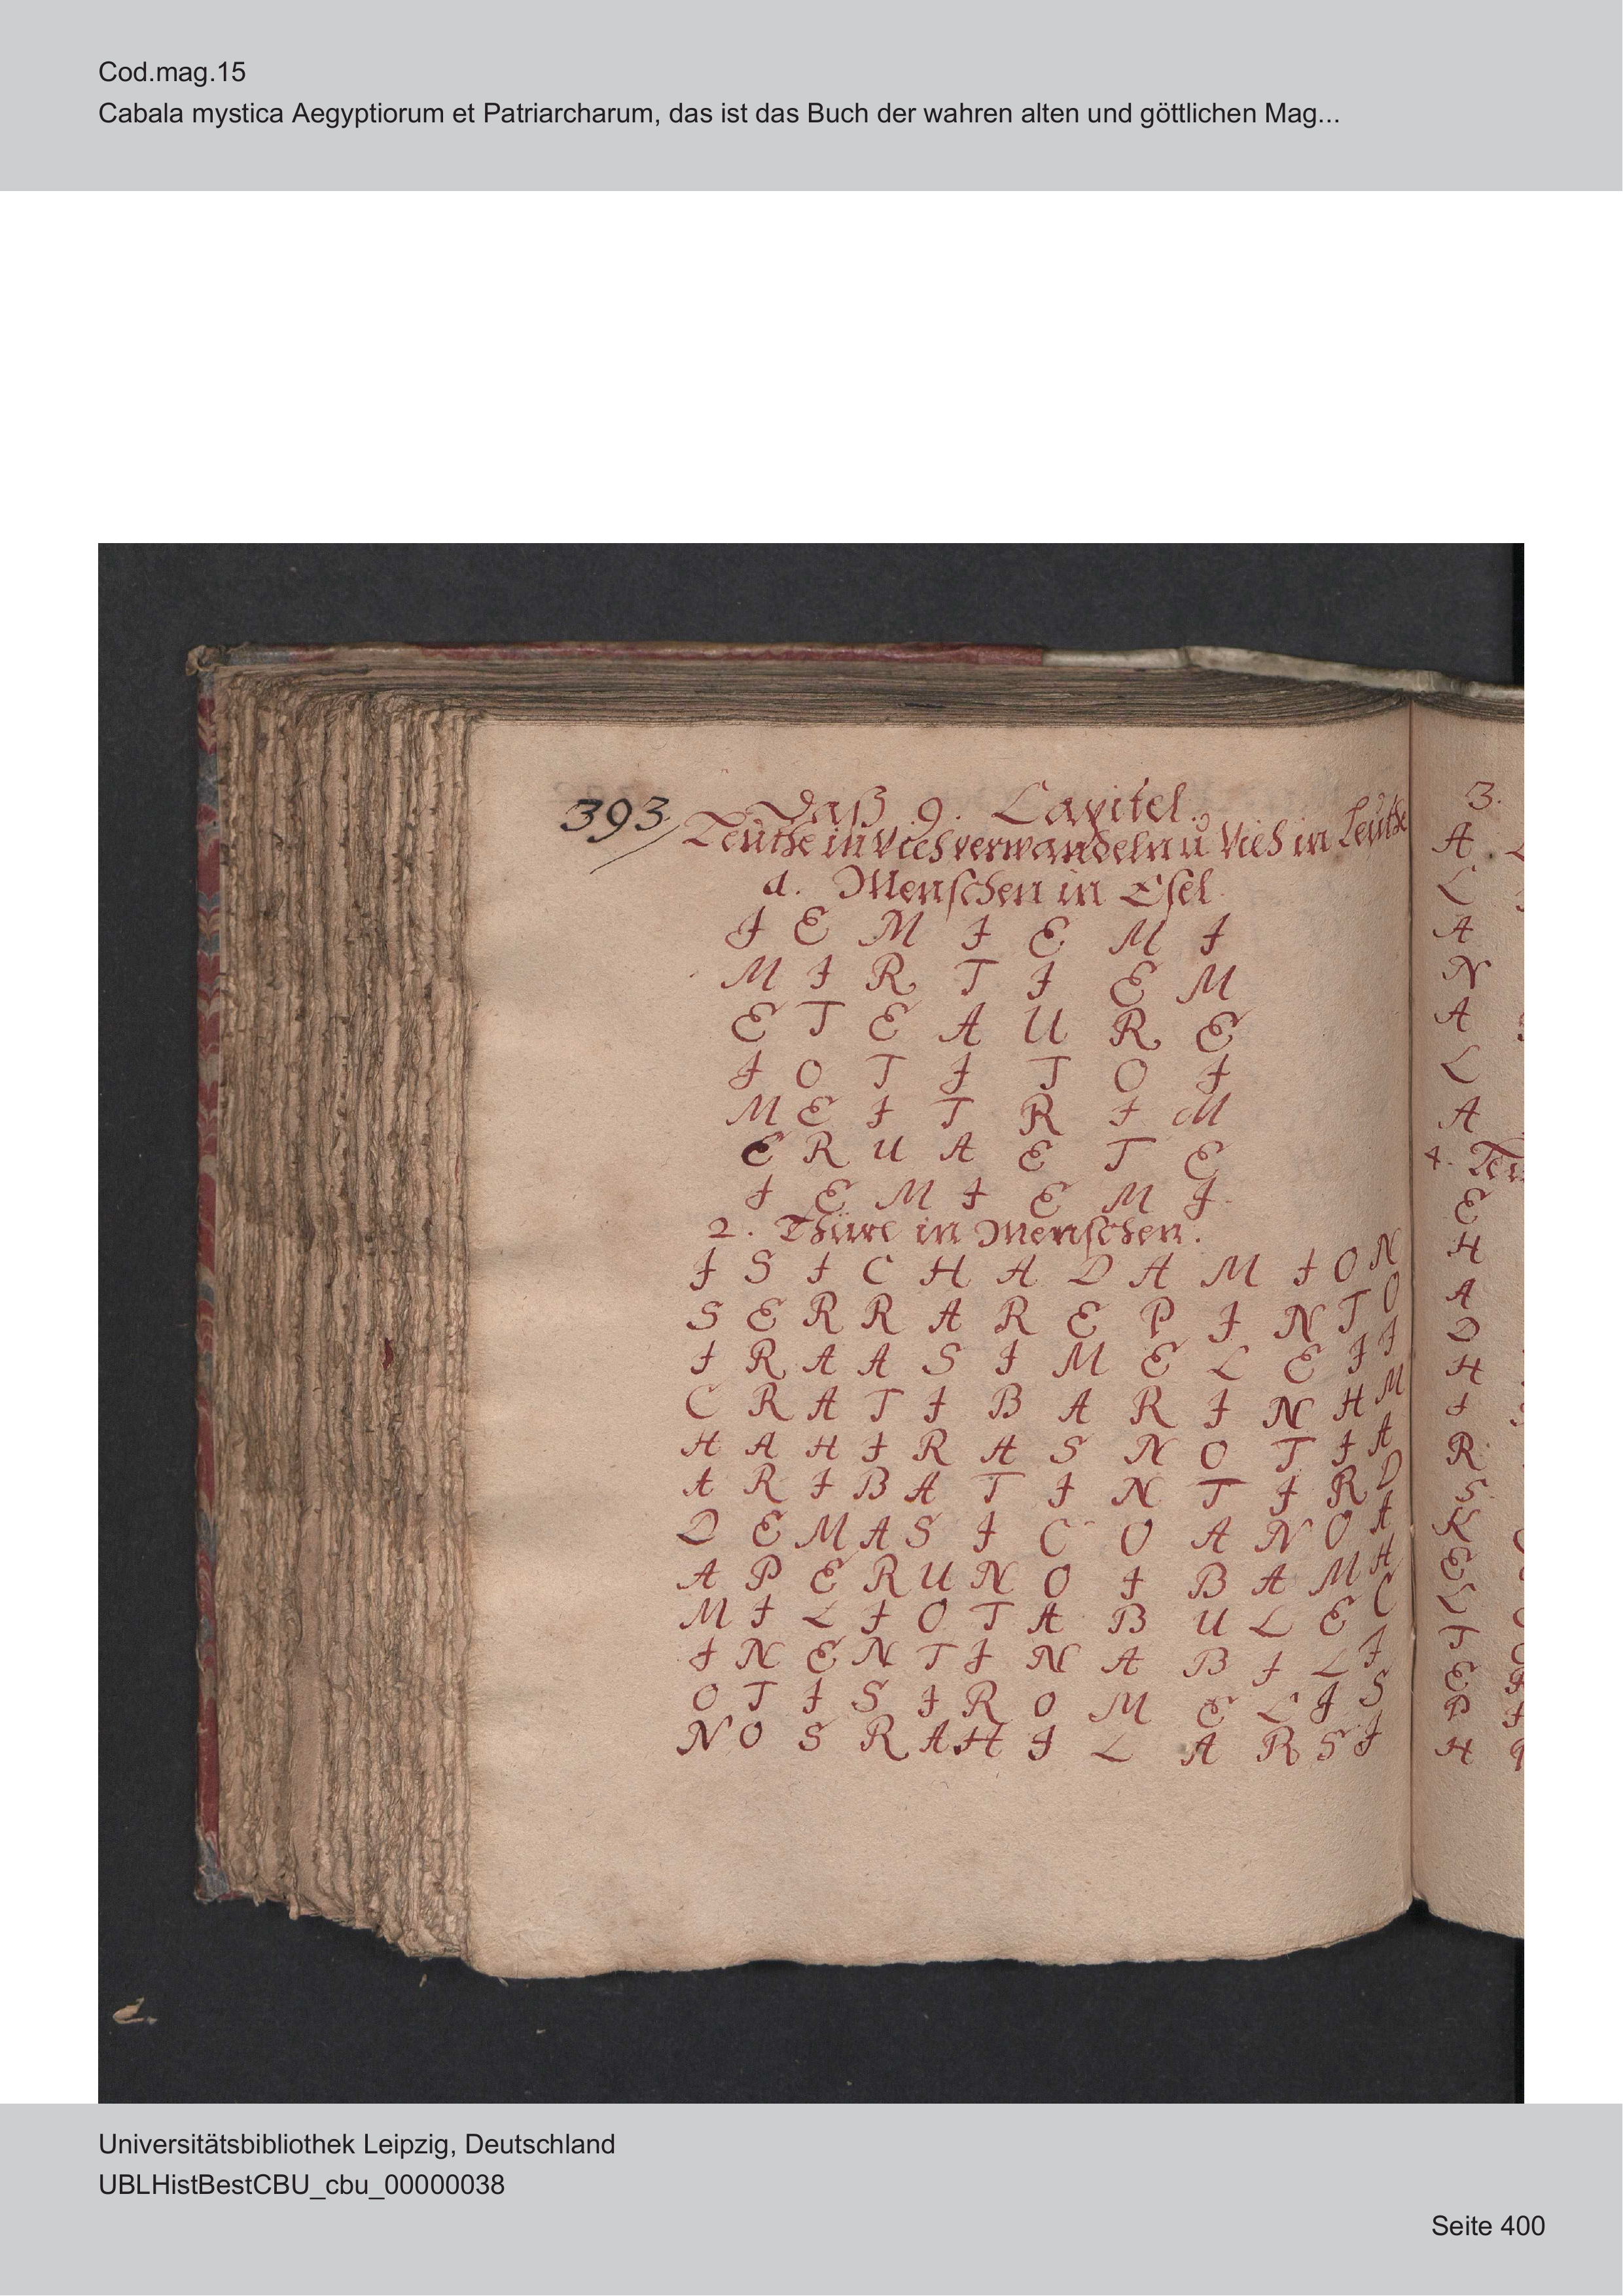 Cod.mag.15
Cabala mystica Aegyptiorum et Patriarcharum, das ist das Buch der wahren alten und göttlichen Mag...
393
Daß 9. Capitel.
Leüthe in Viehverwandeln ü Vieh in Leüthe
1. Menschen in Esel.
I E M I E M I
M I R T I E M
E T E A U R E
I O T I T O I
M E I T R I M
E R U A E T E
I E M I E M I
2. Thüre in Menschen.
I S I C H A D A M I O N
S E R R A R E P I N T O
I R A A S I M E L E I I
C R A T I B A R I N H M
H A H I R A S N O T I A
A R I B A T I N T I R D
D E M A S I C O A N O A
A P E R U N O I B A M H
M I L I O T A B U L E C
I N E N T I N A B I L I
O T I S I R O M E L I S
N O S R A H I L A R S I
3.
A
L
A
N
A
L
A
4.
E
H
A
D
H
I
R
S
K
E
L
T
E
P
H
Universitätsbibliothek Leipzig, Deutschland
UBLHistBestCBU_cbu_00000038
Seite 400